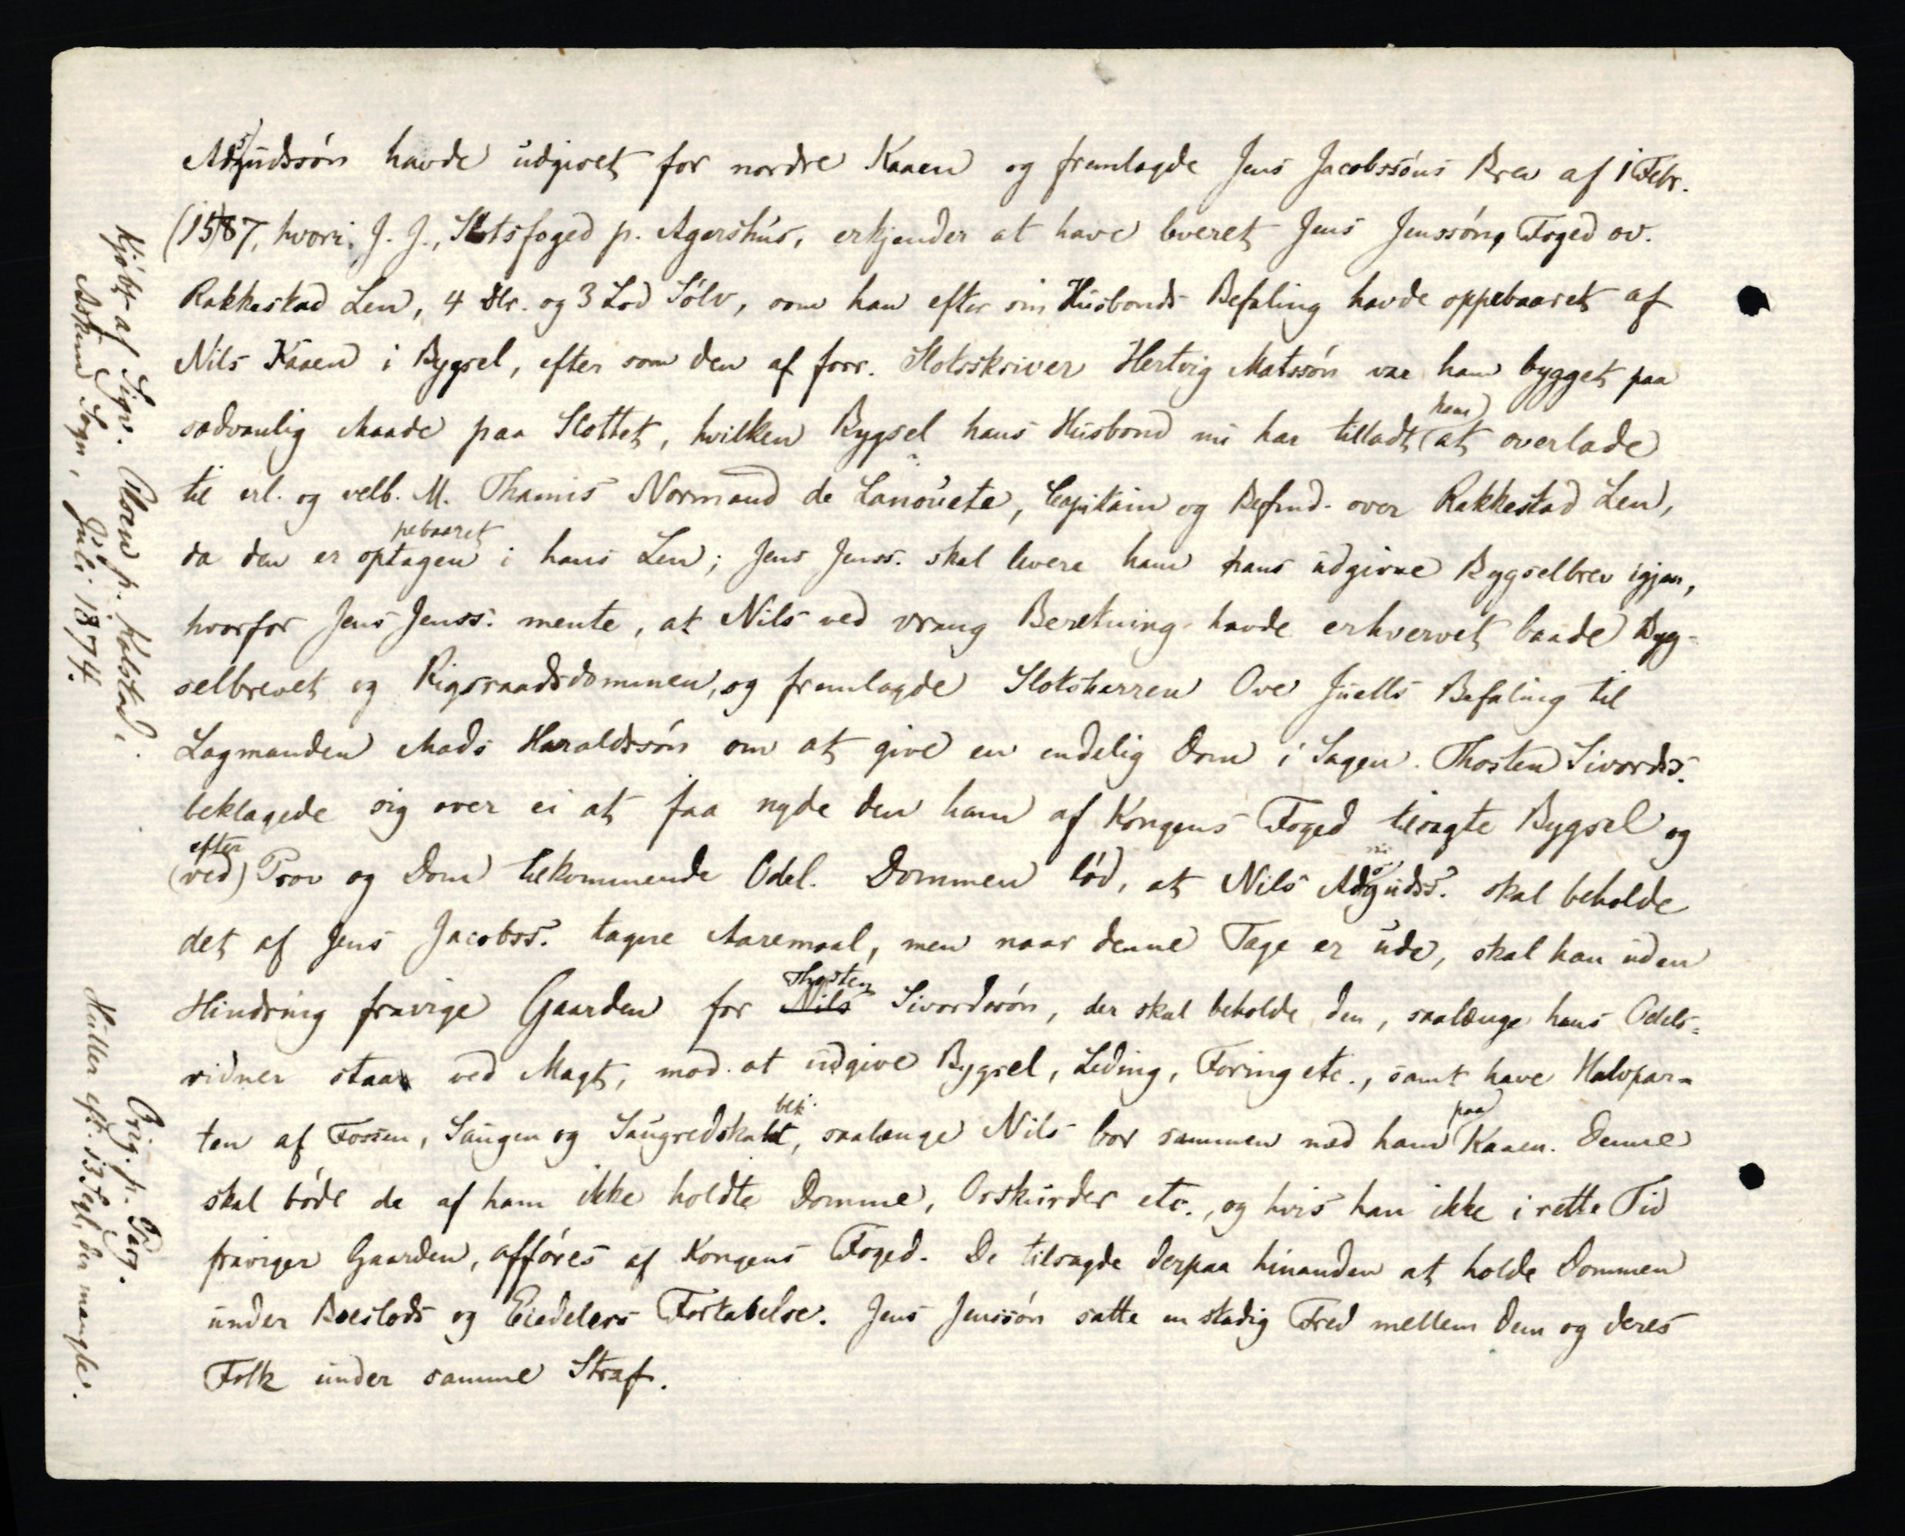 Asgudssön havde udgivet for nordre Kaaen og fremlagde Jens Jacobssöns Brev af 1 Febr.
(15)87, hvori J. J., Slotsfoged p. Agershus, erkjender at have leveret Jens Jenssön, Foged ov.
Rakkestad Len, 4 Dlr. og 3 Lod Sölv, som han efter sin Husbonds Befaling havde oppebaaret af
Nils Kaaen i Bygsel, efter som den af forr. Slotsskriver Hertvig Matssön var ham bygget paa
sædvanlig Maade paa Slottet, hvilken Bygsel hans Husbond nu har tilladt (ham) at overlade
til erl. og velb. M. Thamis Normand de Lanouete, Capitain og Befmd. over Rakkestad Len,
pebaaret
da den er optagen i hans Len; Jens Jenss. skal levere ham hans udgivne Bygselbrev igjen,
hvorfor Jens Jenss. mente, at Nils ved vrang Beretning havde erhvervet baade Byg-
selbrevet og Rigsraadsdommen, og fremlagde Slotsherren Ove Juells Befaling til
Lagmanden Mads Haraldssön om at give en endelig Dom i Sagen. Thosten Sivordss.
beklagede sig over ei at faa nyde den ham af Kongens Foged tilsagte Bygsel og
efter
(ved) Prov og Dom tilkommende Odel. Dommen löd, at Nils Asgudss. skal beholde
det af Jens Jacobss. tagne Aaremaal, men naar denne Tage er ude, skal han uden
Thosten
Hindring fravige Gaarden for Nils Sivordssön, der skal beholde den, saalænge hans Odels-
vidner staar ved Magt, mod at udgive Bygsel, Leding, Foring etc., samt have Halvpar-
bek. paa
ten af Fossen, Saugen og Saugredskabet, saalænge Nils bor sammen med ham Kaaen. Denne
skal böde de af ham ikke holdte Domme, Orskurder etc., og hvis han ikke i rette Tid
fraviger Gaarden, afföres af Kongens Foged. De tilsagde derpaa hinanden at holde Dommen
under Boeslods og Eiedelers Fortabelse. Jens Jenssön satte en stadig Fred mellem dem og deres
Folk under samme Straf.
Kjöbt af Sigv. Olsen p. Kolstad,
Askim Sogn, Juli 1874.
Orig. p. Perg.
Huller eft. 13 Segl, der mangle.